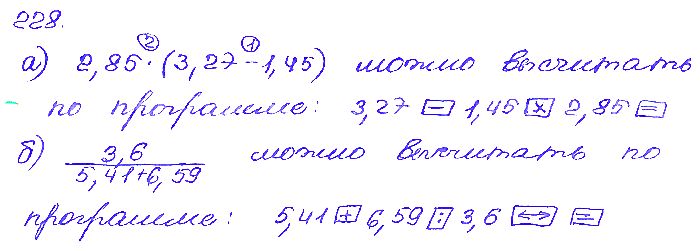 228.
а) 2,85 · (3,27 − 1,45) можно высчитать
по программе: 3,27 [−] 1,45 [×] 2,85 [=]
б) 3,6 / (5,41+6,59) можно высчитать по
программе: 5,41 [+] 6,59 [:] 3,6 [↔] [=]